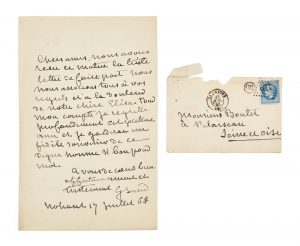 Chers amis, nous avons
reçu ce matin la triste
lettre de faire part. Nous
nous associons tous à vos
regrets et à la douleur
de notre chère Elisa. Pour
mon compte je regrette
profondément cet excellent
ami et je garderai un
fidèle souvenir de ce
digne homme si bon pour
moi.
A vous de coeur bien
affectueusement et
tristement G Sand
Nohant 17 juillet 68
Monsieur Boutet
à
Seine et Oise